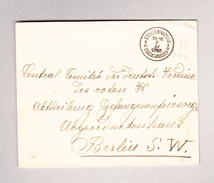 Central Comité der deutsch. Vereine
des roten
Abtheilung Gefangenenfürsorge
Abgeordnetenhaus
Berlin S. W.